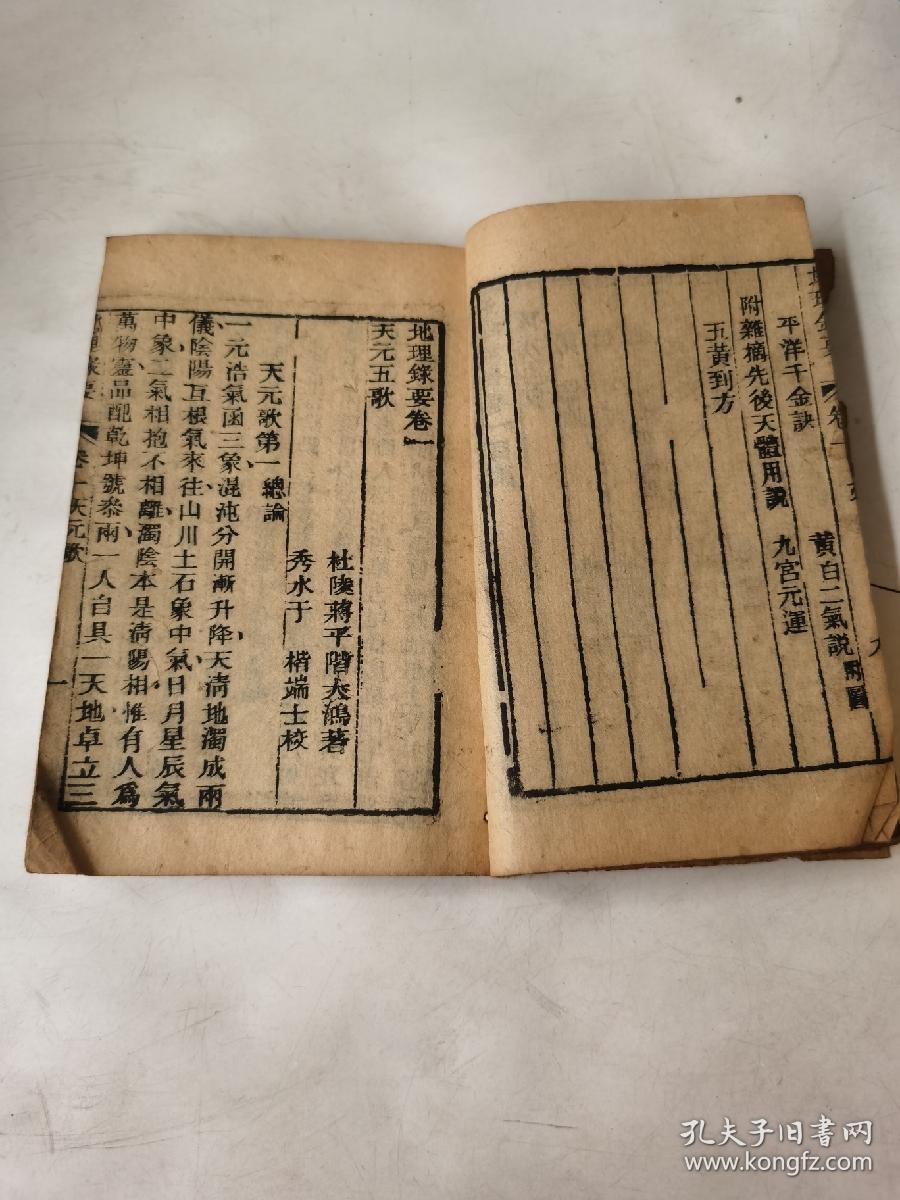 平洋千金訣
黃白二氣說附圖
附雜摘先後天體用說
九宮元運
五黃到方
卷一
地理錄要卷一
天元五歌
杜陵蔣平階大鴻著
秀水于楷端士校
天元歌第一總論
一元浩氣函三象混沌分開漸升降天清地濁成兩
儀陰陽互根氣來往山川土石象中氣日月星辰氣
中象二氣相抱不相離濁陰本是清陽相惟有人爲
萬物靈品配乾坤號叅兩一人自具一天地卓立三
卷一天元歌
一
孔夫子旧书网
www.kongfz.com